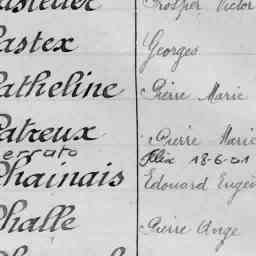 Prosper Victor
astex Georges
atheline Pierre Marie
atreux Pierre Marie
errato Félix 18-6-01
hainais Edouard Eugè
halle Pierre Ange